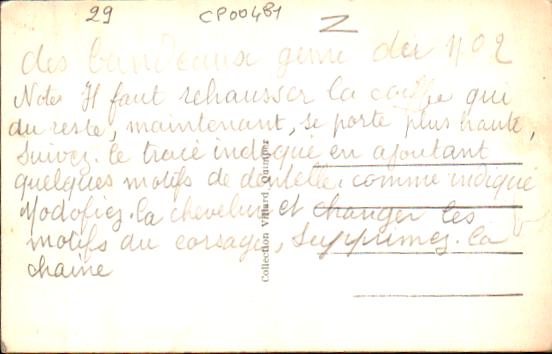 29 CP00481
des bandeaux genre du n° 2
Note Il faut rehausser la coiffe qui
du reste, maintenant, se porte plus haute,
suivez. le tracé indiqué en ajoutant
quelques motifs de dentelle, comme indiqué
Modofiez. la chevelure et changer les
motifs du corsage, supprimez. la
chaine
Collection Villard, Quimper